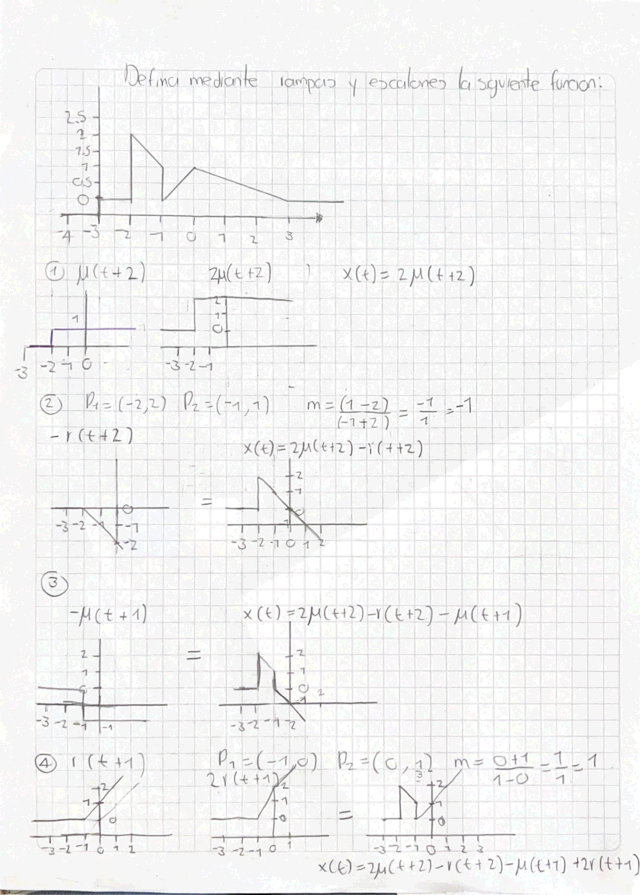 Defina mediante rampas y escalones la siguiente funcion:
2.5
2
1.5
1
0.5
0
-4 -3 -2 -1 0 1 2 3
① μ(t+2) 2μ(t+2) x(t) = 2μ(t+2)
1
2
1
0
-3 -2 -1 0
-3 -2 -1
② P₁=(-2,2) P₂=(-1,1) m=(1-2)/(-1+2)=-1/1=-1
-r(t+2)
x(t)=2μ(t+2)-r(t+2)
=
-3 -2 -1 0
-1
-2
2
1
0
-3 -2 -1 0 1 2
③
-μ(t+1) x(t)=2μ(t+2)-r(t+2)-μ(t+1)
=
2
1
-3 -2 -1 -1
2
1
0
-3 -2 -1
④ r(t+1) P₁=(-1,0) P₂=(0,1) m=0+1/1-0=1/1=1
2r(t+1)
=
2
1
0
-3 -2 -1 0 1 2
2
1
0
-3 -2 -1 0 1
2
1
0
-3 -2 -1 0 1 2 3
x(t)=2μ(t+2)-r(t+2)-μ(t+1)+2r(t+1)